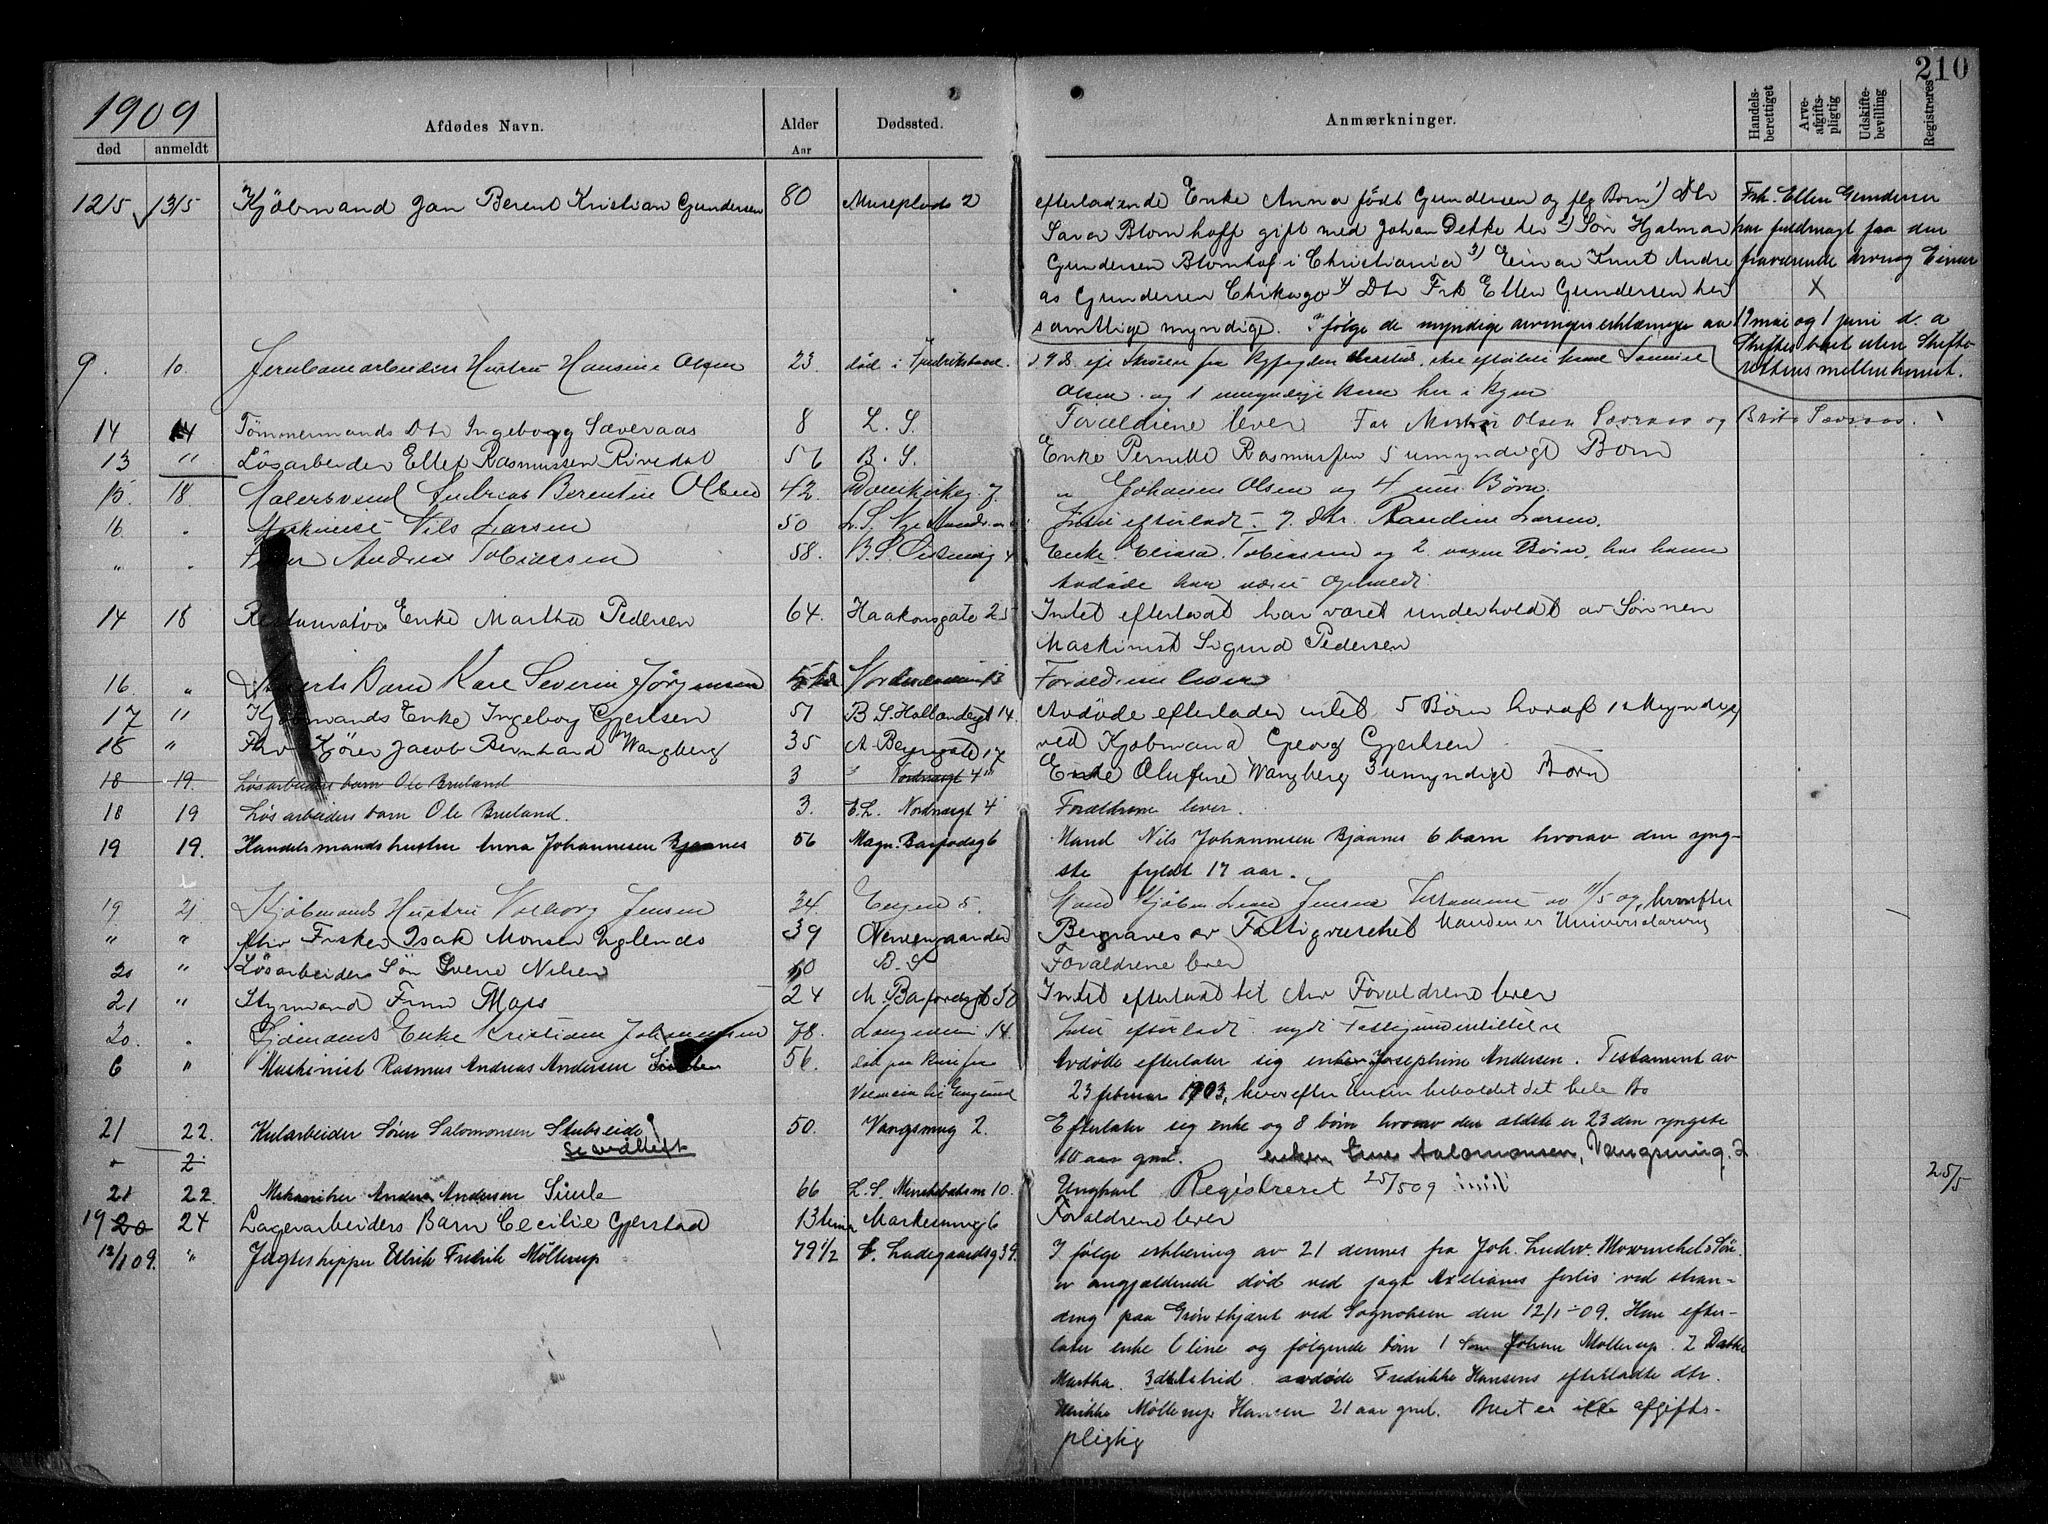 210
1909
død anmeldt Afdødes Navn. Alder Aar Dødssted. Anmærkninger. Handelsberettiget Arveafgiftspligtig Udskiftebevilling Registreres
12/5 13/5 Kjøbmand Jan Berent Kristian Gundersen 80 Mureplads 2 efterladende Enke Anna født Gundersen og flg Born 1) Dtr Frk. Ellen Gundersen
Sara Blomhoff gift med Johan Detke her 2) Søn Hjalmar har fuldmagt fra den
Gundersen Blomhof i Christiania 3) Einar Knut Andre fraværende arving Einar
as Gundersen Chikago 4) Dtr Frk Ellen Gundersen her X
samtlige myndige. I følge de myndige arvingers erklæringer av 19 mai og 1 juni d. a
9. 10. Jernbanearbeiders Hustru Hansine Olsen 23. død i Fredrikstad Skiftes boet uten Skifte-
Olsen og 1 umyndige her i byen rettens mellemkomst.
14 14 Tømmermands Dtr Ingeborg Sæveraas 8 L. S. Forældrene lever Far Martin Olsen Sæveraas og Brita Sæveraas.
13 " Løsarbeider Ellef Rasmussen Rivedal 56 B. S. Enke Pernille Rasmussen 5 umyndige Born
15. 18. Malersvend Andreas Berentin Olsen 42. Domkirkeg 7. " Johanne Olsen og 4 um. Børn.
16 . Maskinist Nils Larsen 50 L. S. Intet efterladt. Dtr. Randine Larsen.
" . Andreas Tobiassen 58. B. S. 4 Enke Elissa Tobiassen og 2 voxne Børn, hos hvem
Avdøde har været opholdt.
14 18 Restauratørs Enke Martha Pedersen 64. Haakonsgate 25 Intet efterladt har været underholdt av Sønnen
Maskinist Sigurd Pedersen
16. " Barn Kare Severin Jørgensen 13 Forældrene lever
17 " Kjøbmands Enke Ingeborg Gjertsen 51 B. S. Hollendergt 14. Avdøde efterlader intet 5 Børn hvoraf 1 Myndig
18 " Fhv Kjører Jacob Bernhard Wangberg 35 A. Bergsgate 17 ved Kjøbmand Georg Gjertsen
18 19. Løsarbeiders barn Ole Bruland 3 Nordnæsgt 4 Enke Olufine Wangberg 3 umyndige Born
18 19 Løsarbeiders barn Ole Bruland. 3. E. L. Nordnæsgt 4 Forældrene lever.
19 19. Handelsmandshustru Anna Johannesen Bjaanes 56 Magn. Barfodsg 6 Mand Nils Johannesen Bjaanes 6 barn hvorav den yng-
ste fyldt 17 aar.
19 21 Kjøbmands Hustru Valborg Jensen 34. Engen 5 Mand Kjøbm. Jensen Testamente av 11/5 09, hvorefter
" " Fhv Fisker Isak Monsen Uglenes 39 Nervengaarden Begraves av Fattigvæsenet Manden er Universalarving
20 " Løsarbeiders Søn Sverre Nilsen 10 B. S Forældrene lever
21 " Styrmand Finn Mass 24 M. Bafodsgt 50 Intet efterladt til Arv Forældrene lever
20. . Sjømands Enke Kristiane Johannessen 78. 14. Intet efterladt. nydt Fattigunderstøttelse
6 " Maskinist Rasmus Andreas Andersen 56. død paa Reise fra Avdøde efterlater sig enken Josephine Andersen. Testament av
Valencia til England 23 februar 1903, hvorefter Enken beholdet det hele Bo
21 22. Kularbeider Søren Salomonsen Stubseide! 50. Vangsmug 2. Efterlater sig enke og 8 børn hvorav den ældste er 23 den yngste
" 2 Se vedheft 10 aar gml. enken Salomonsen, Vangsmug. 2
21 22. Mekaniker Anders Andersen Simle 66 L. S. 10. Ungkarl Registreret 25/5 09 25/5
19 20 24 Lagerarbeiders Barn Cecilie Gjerstad 13 timer Markesmug 6 Forældrene lever
12/1 09. " Jagteskipper Ulrik Fredrik Møllerup 79 1/2 Ladegaardsg 39. I følge erklæring av 21 dennes fra Joh. Ludv. Mowinckels Søn
er angjældende død ved jagt Axelianes forlis ved stran-
ding paa Grønskjæret ved Sognoksen den 12/1-09. Han efter-
later enke Oline og følgende børn 1 Søn Johan Møllerup. 2 Datter
Martha. 3 dtr Astrid. avdøde Fredrikke Hansens efterladte dtr.
Ulrikke Møllerup Hansen 21 aar gml. Boet er ikke afgifts-
pligtig